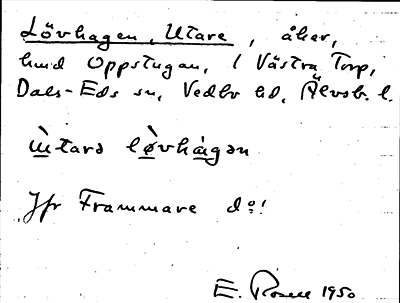 Lövhagen, Utare, åker,
hmd Oppstugan, i Västra Torp,
Dals-Eds sn, Vedbo hd, Älvsb. l.
ùtara lø̀vhàgən
Jfr Frammare do!
E. Rosell 1950